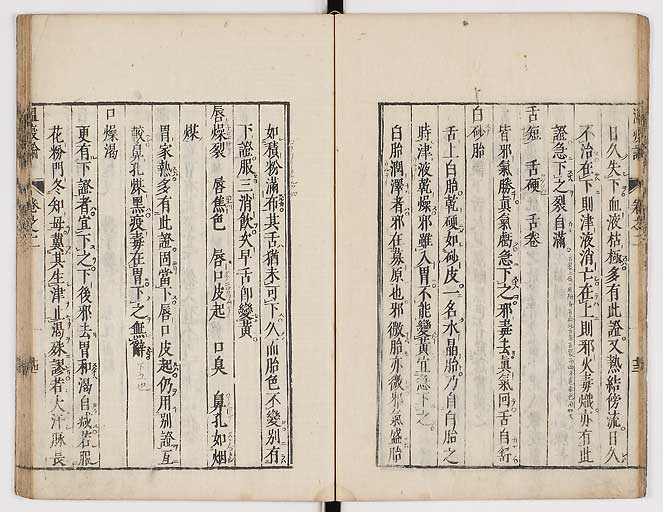 日久失下血液枯極多有此證又熱結傍流日久
不治在下則津液消亡在上則邪火毒熾亦有此
證急下之裂自滿
舌短 舌硬 舌卷
皆邪氣勝真氣虧急下之邪毒去真氣回舌自舒
白砂胎
舌上白胎乾硬如砂皮一名水晶胎乃自白胎之
時津液乾燥邪雖入胃不能變黃宜急下之
白胎潤澤者邪在募原也邪微胎亦微邪氣盛胎
如積粉滿布其舌猶未可下久而胎色不變別有
下證服三消飲次早舌即變黃
唇燥裂 唇焦色 唇口皮起 口臭 鼻孔如烟
煤
胃家熱多有此證固當下唇口皮起仍用別證互
較鼻孔煤黑疫毒在胃下之無辭
口燥渴
更有下證者宜下之下後邪去胃和渴自減若服
花粉門冬知母冀其生津止渴殊謬若大汗脉長
溫疫論 卷之二